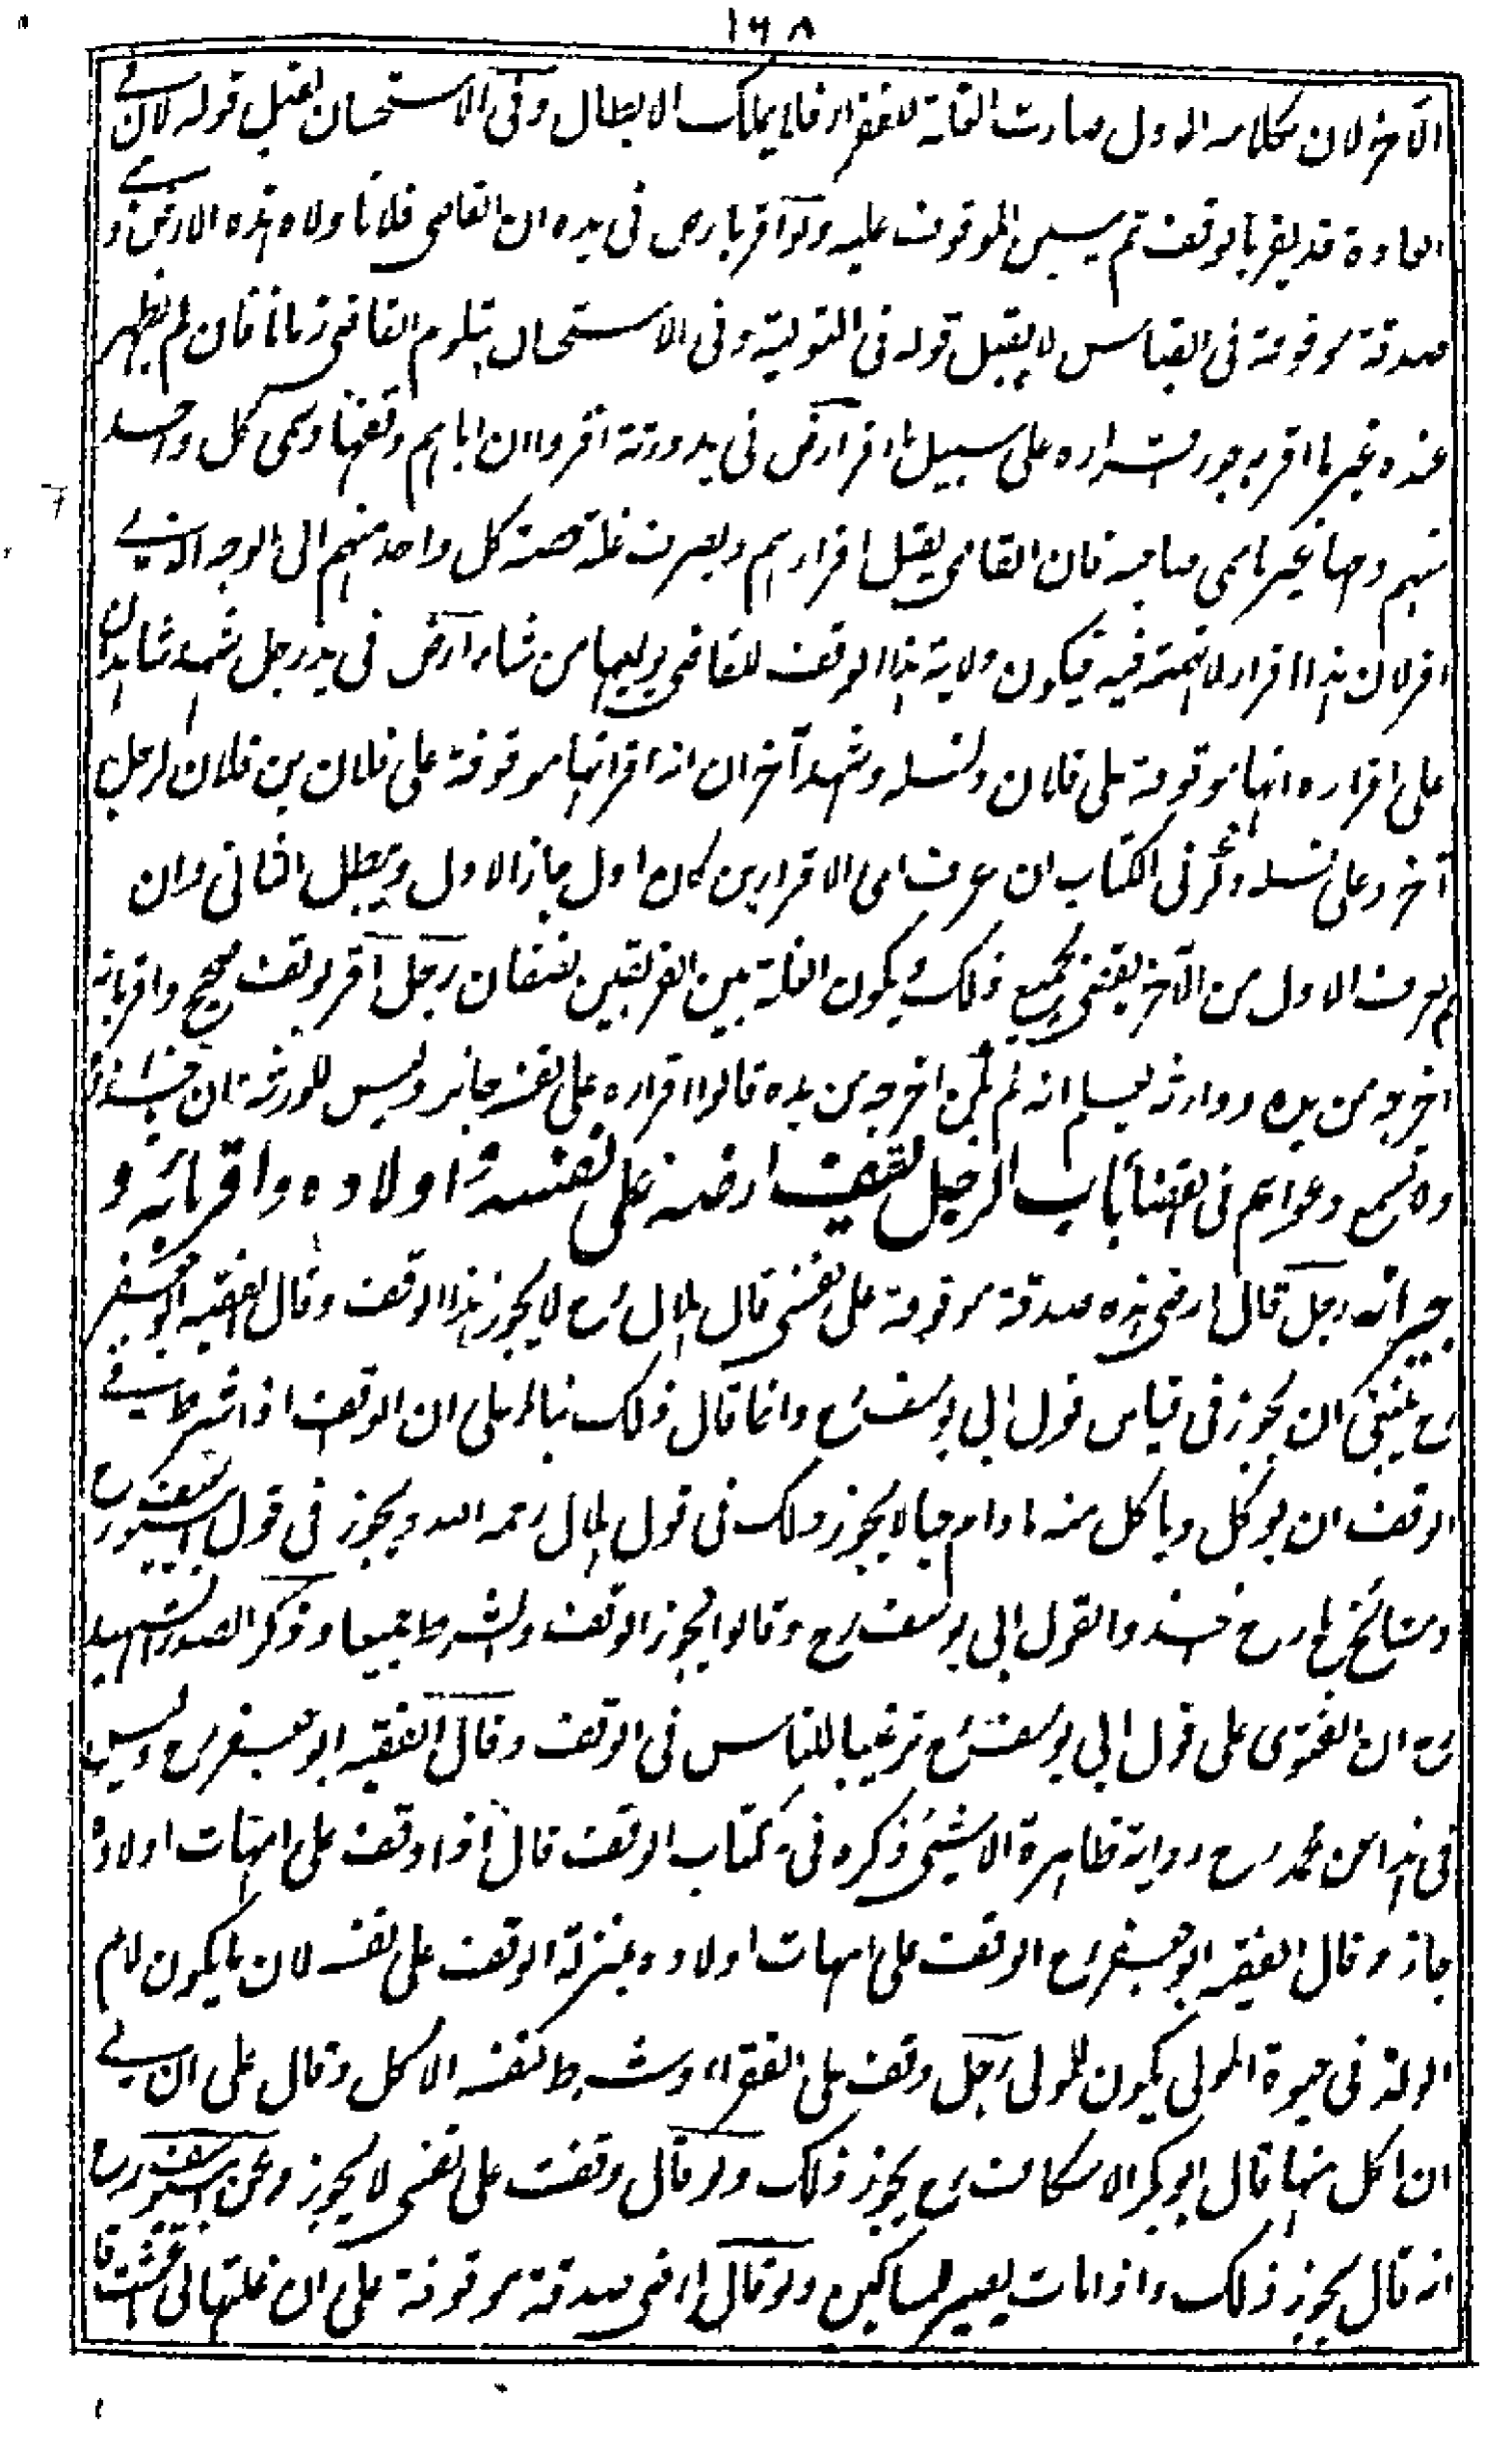 ١٦٨
الآخر لان بكلامه الاول صارت الغلة للفقراء فلا يملك الابطال وفى الاستحسان يقبل قوله لان فى
العادة قد يقر بالوقف ثم يبين الموقوف عليه ولو اقر بارض فى يده ان القاضى فلانا ولاه هذه الارض و
صدقة موقوفة فى القياس لا يقبل قوله فى التولية وفى الاستحسان يتلوم القاضى زمانا فان لم يظهر
عنده غير ما اقر به جوز اقراره على سبيل ما اقر ارض فى يد ورثة اقروا ان اباهم وقفها وسمى كل واحد
منهم وجها غير ما سمى صاحبه فان القاضى يقبل اقرارهم ويصرف غلة حصة كل واحد منهم الى الوجه الذى
اقر لان هذا اقرار لا تهمة فيه فيكون ولاية هذا الوقف للقاضى يوليها من شاء ارض فى يد رجل شهد شاهدان
على اقراره انها موقوفة على فلان ونسله وشهد آخران انه اقر انها موقوفة على فلان بن فلان لرجل
آخر وعلى نسله ذكر فى الكتاب ان عرف اى الاقرارين كان اول جاز الاول ويبطل الثانى وان
لم يعرف الاول من الآخر يقضى بجميع ذلك ويكون الغلة بين الفريقين نصفان رجل اقر بوقف صحيح واقر بانه
اخرجه من يده ووارثه يعلم انه لم يكن اخرجه من يده قالوا اقراره على نفسه جائز وليس للورثة ان
ولا تسمع دعواهم فى القضاء باب الرجل يقف ارضه على نفسه او اولاده واقربائه و
جيرانه رجل قال ارضى هذه صدقة موقوفة على نفسى قال هلال رح لا يجوز هذا الوقف وقال الفقيه ابو جعفر
رح ينبغى ان يجوز فى قياس قول ابى يوسف رح وانما قال ذلك بناء على ان الوقف اذا شرط فى
الوقف ان يوكل وياكل منه ما دام حيا لا يجوز ذلك فى قول هلال رحمه الله ويجوز فى قول ابى يوسف رح
ومشائخ بلخ رح اخذوا بقول ابى يوسف رح وقالوا يجوز الوقف والشرط جميعا وذكر الصدر الشهيد
رح ان الفتوى على قول ابى يوسف رح ترغيبا للناس فى الوقف وقال الفقيه ابو جعفر رح وليس
فى هذا عن محمد رح رواية ظاهرة الا شيئ ذكره فى كتاب الوقف قال اذا وقف على امهات اولاده
جاز وقال الفقيه ابو جعفر رح الوقف على امهات اولاده بمنزلة الوقف على نفسه لان ما يكون لام
الولد فى حيوة المولى يكون للمولى رجل وقف على الفقراء وشرط لنفسه الاكل وقال على ان لى
ان اكل منها قال ابو بكر الاسكاف رح يجوز ذلك ولو قال وقفت على نفسى لا يجوز وعن ابى يوسف رح
انه قال يجوز ذلك واذا مات يصير للمساكين ولو قال ارضى صدقة موقوفة على ان غلتها لى ما عشت قا